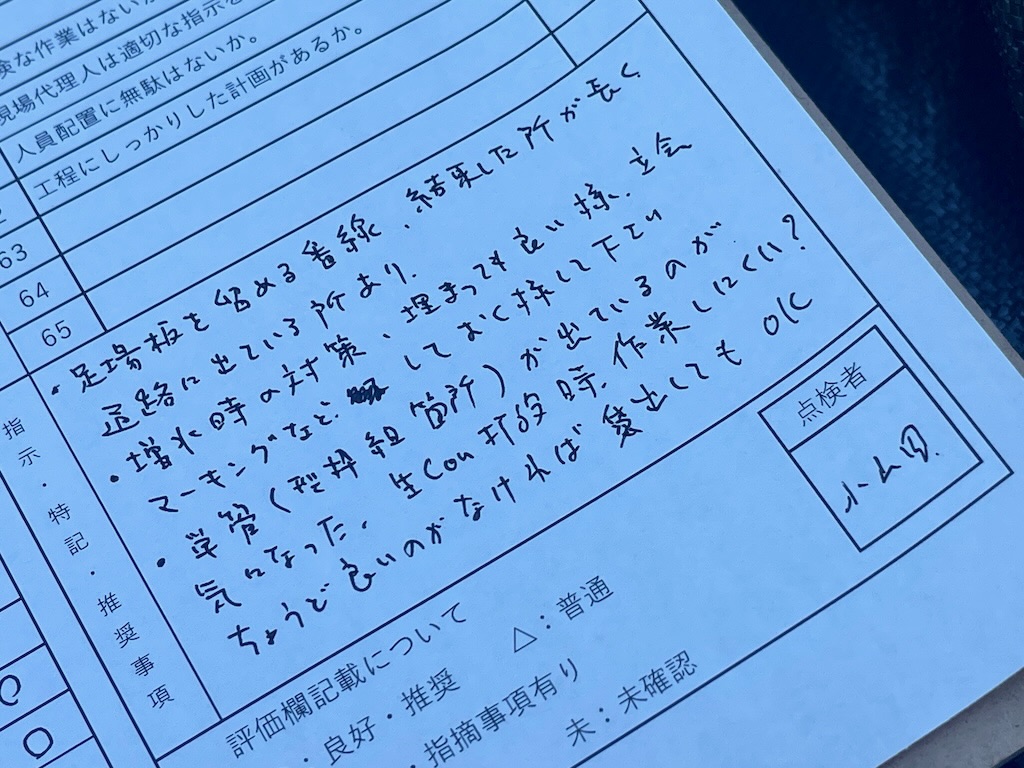 険な作業はないか
現場代理人は適切な指示を
人員配置に無駄はないか。
工程にしっかりした計画があるか。
2
63
64
65
指示・特記・推奨事項
・足場板を留める番線、結束した所が長く
通路に出ている所あり。
・増水時の対策、埋まっても良い様、立会
マーキングなど、しておく様して下さい
・単管(型枠組箇所)が出ているのが
気になった。生Con打設時、作業しにくい?
ちょうど良いのがなければ 出しても OK
点検者
小山田
評価欄記載について
・良好・推奨 △:普通
・指摘事項有り
未:未確認